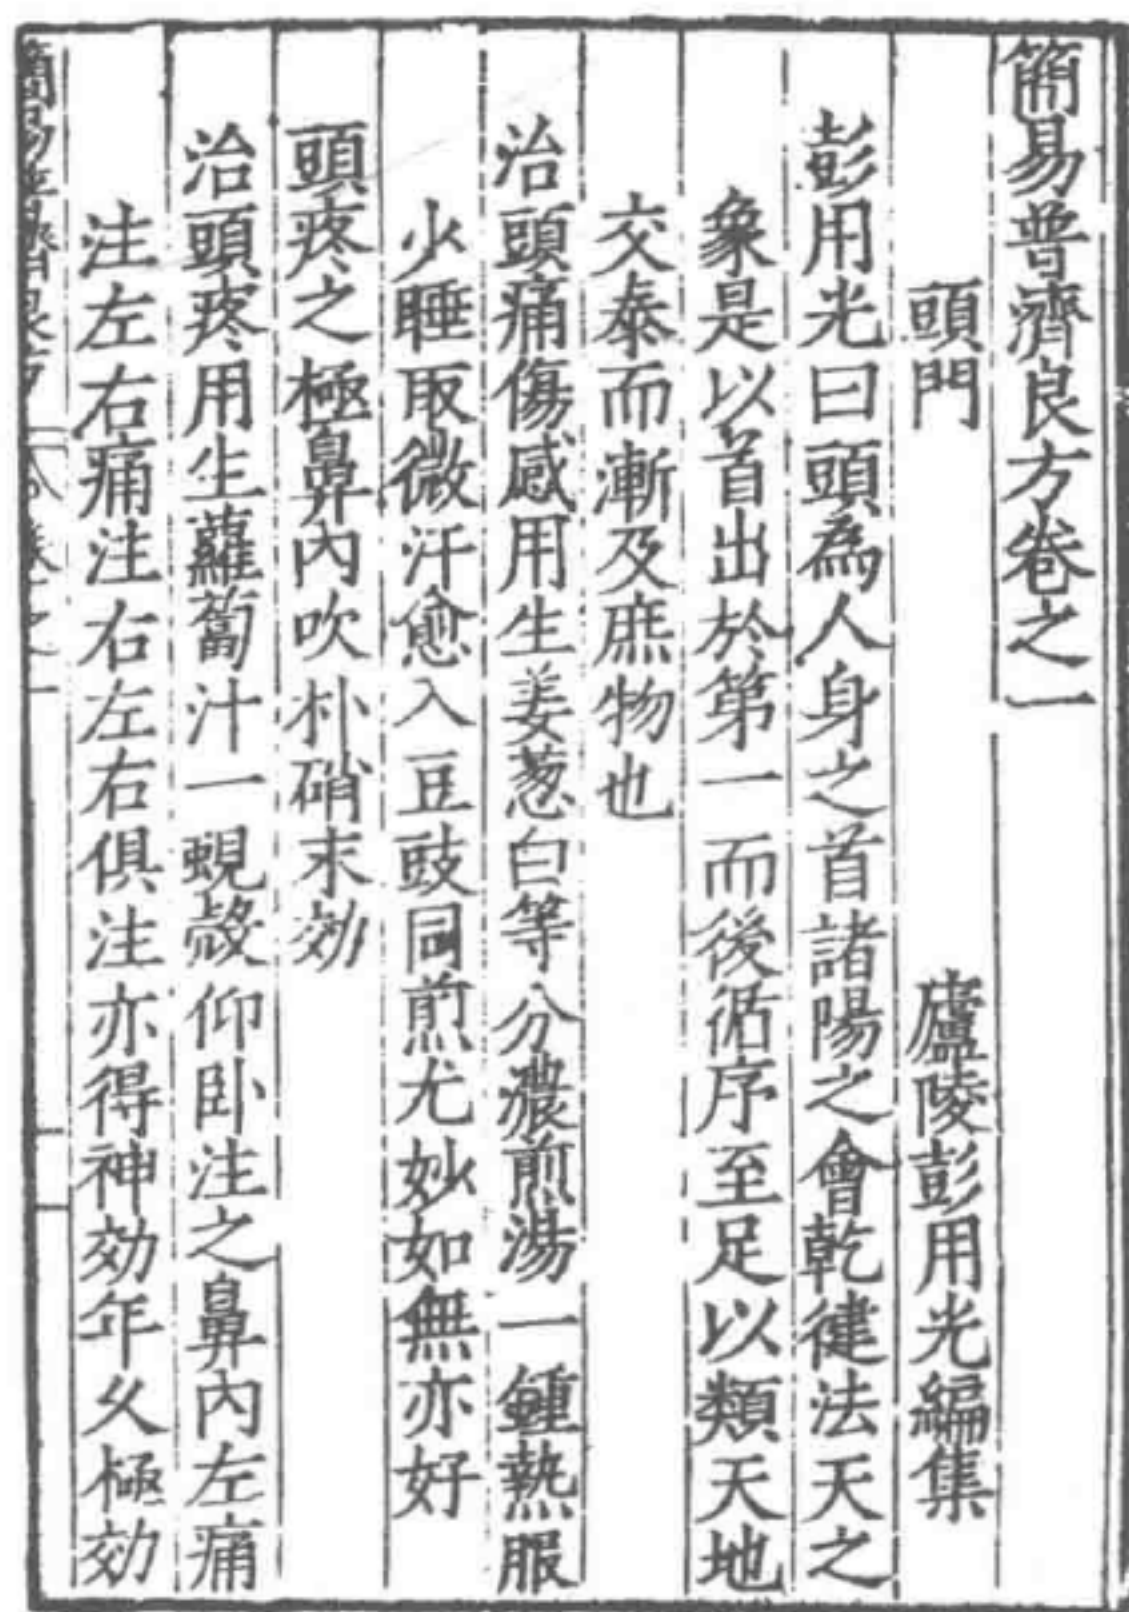 簡易普濟良方卷之一
頭門　廬陵彭用光編集
彭用光曰頭為人身之首諸陽之會乾健法天之
象是以首出於第一而後循序至足以類天地
交泰而漸及庶物也
治頭痛傷感用生姜葱白等分濃煎湯一鍾熱服
少睡取微汗愈入豆豉同煎尤妙如無亦好
頭疼之極鼻內吹朴硝末効
治頭疼用生蘿蔔汁一蜆殼仰卧注之鼻內左痛
注左右痛注右左右俱注亦得神効年久極効